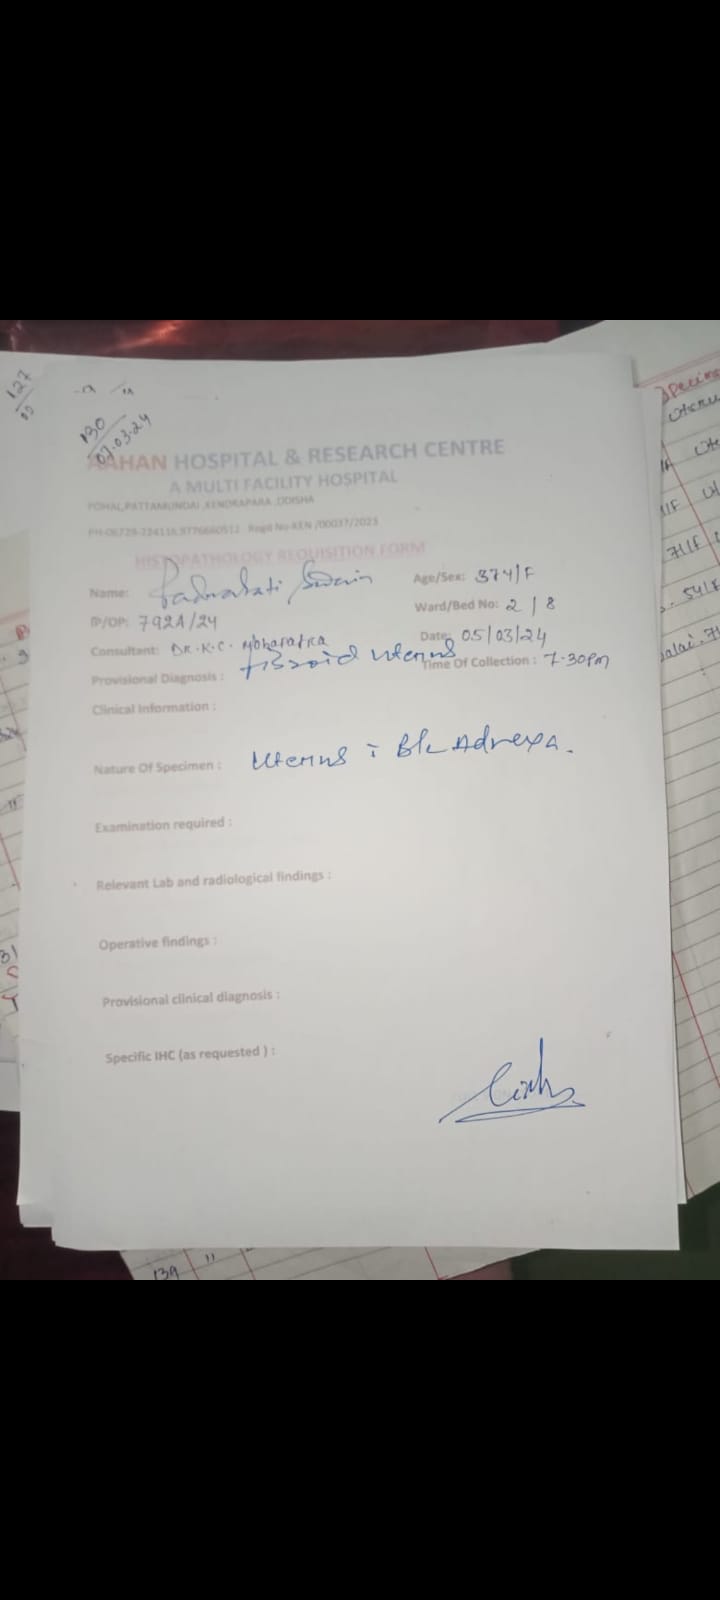 127
130
07.03.24
AAHAN HOSPITAL & RESEARCH CENTRE
A MULTI FACILITY HOSPITAL
POHAL,PATTAMUNDAI ,KENDRAPARA ,ODISHA
PH-06729-224116,9776660512 Regd No-KEN /00037/2023
HISTOPATHOLOGY REQUISITION FORM
Name: Swain Age/Sex: 37Y/F
IP/OP: 792A/24 Ward/Bed No: 2/8
Consultant: DR.K.C. Date: 05/03/24
Provisional Diagnosis: fibroid uterus Time Of Collection: 7.30pm
Clinical Information :
Nature Of Specimen : Uterus Adnexa.
Examination required :
Relevant Lab and radiological findings :
Operative findings :
Provisional clinical diagnosis :
Specific IHC (as requested ) :
71/F
54/F
139 "